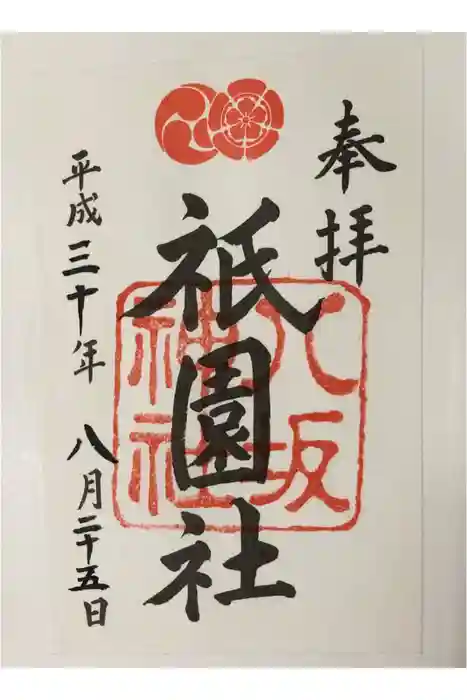 奉拝
八坂
神社
祇園社
平成三十年 八月二十五日